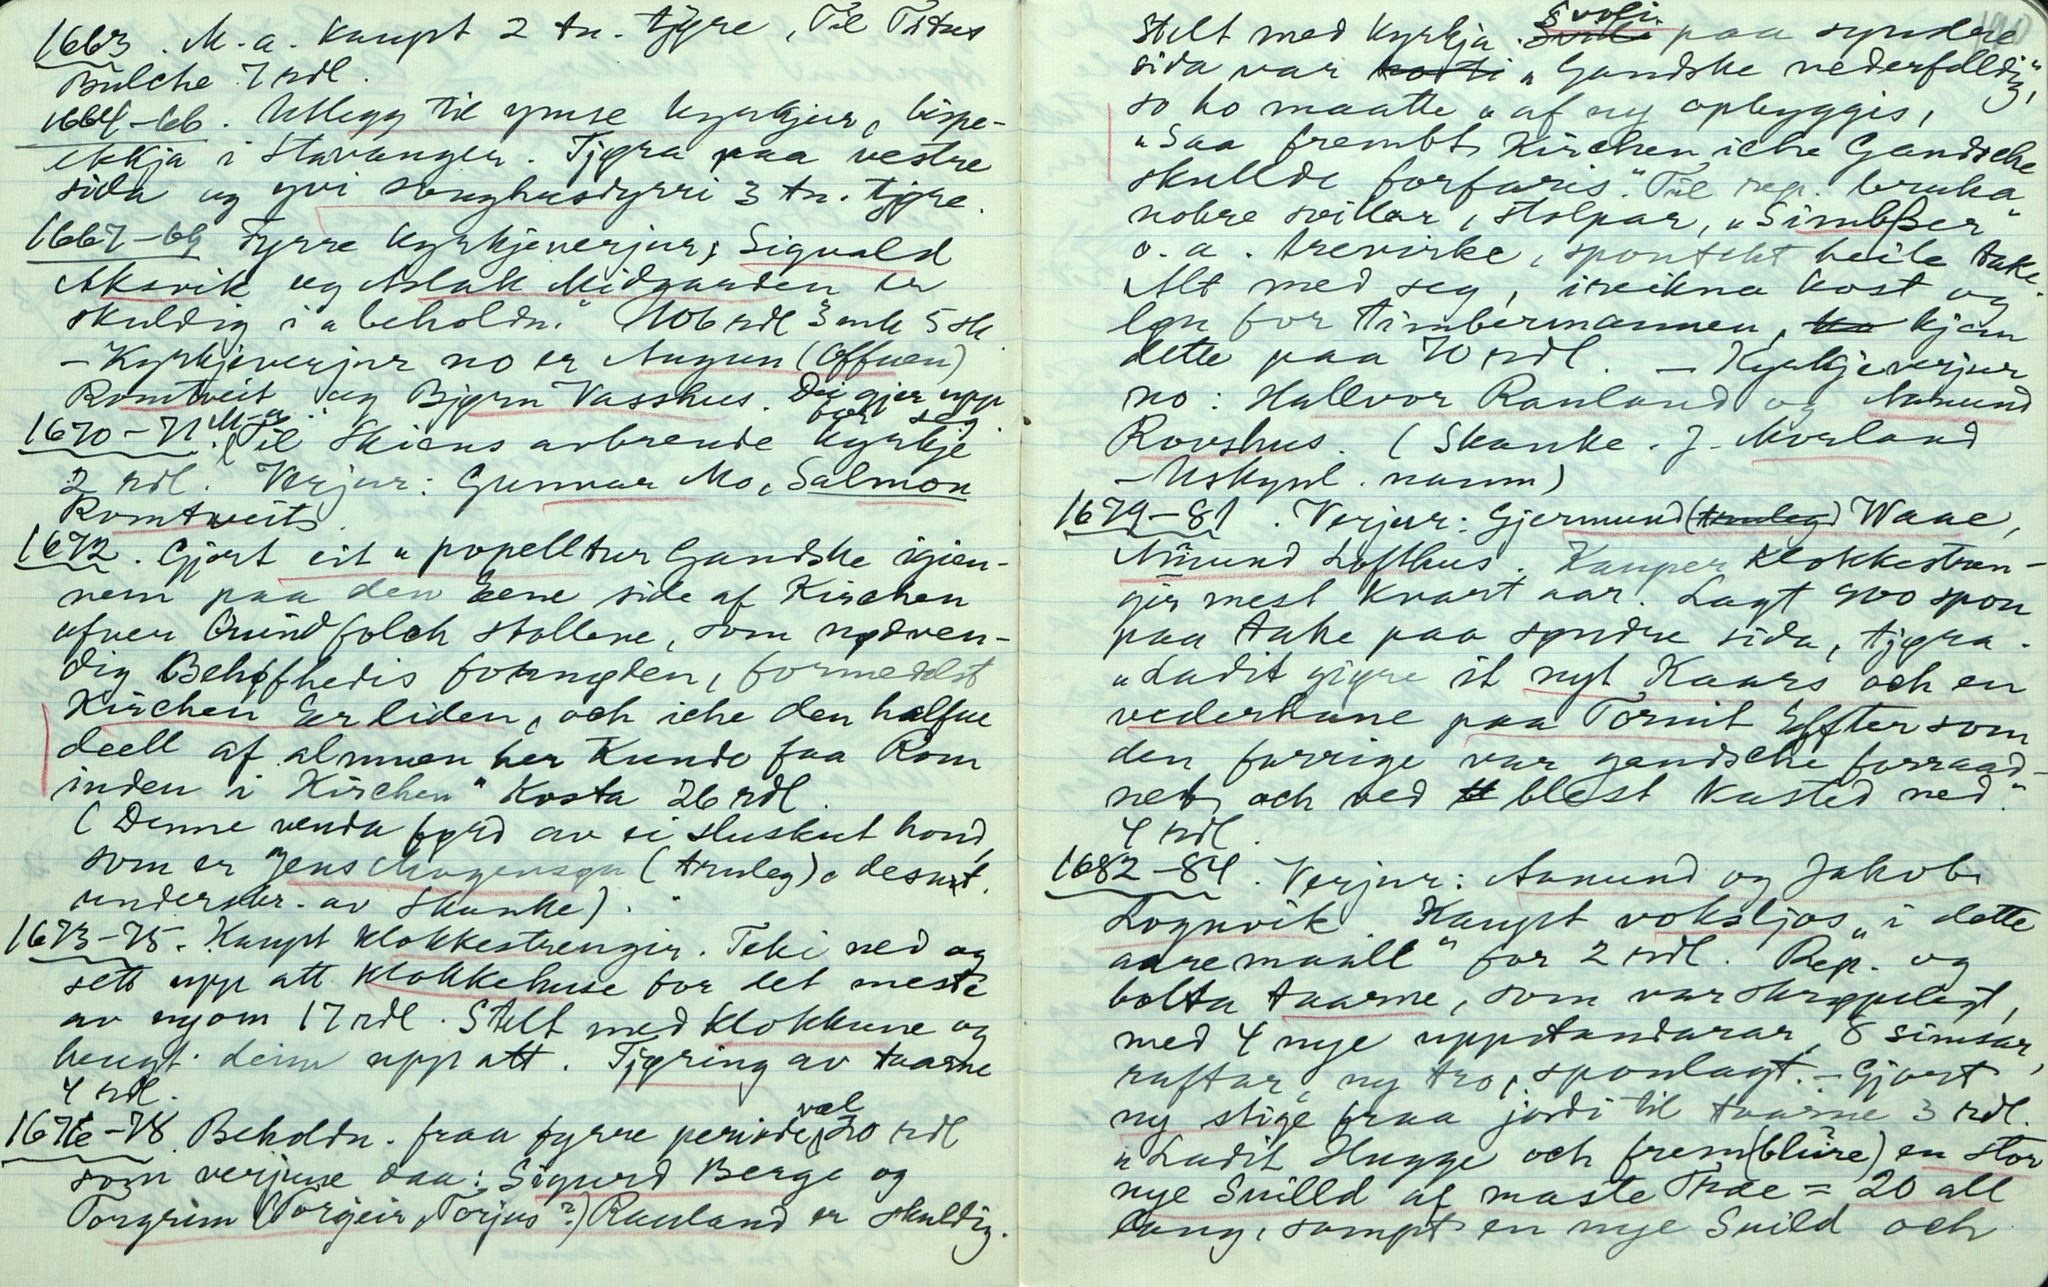 1663. M.a. kaupt 2 tn. tjøre, Til Titus
Bülche 7 rdl.
1664-66. Utlegg til ymse kyrkjur, bispe-
ekkja i Stavanger. Tjøra paa vestre
sida og yvi songhusdyrri 3 tn. tjøre.
1667-69 Fyrre kyrkjeverjur, Sigvald
Aksvik og Aslak Midgarden er
skuldig i "beholdn." 106 rdl 3 mk 5 sk.
- Kyrkjeverjur no er Augun (Offuen)
Romtveit og Bjørn Vasshus. Dei gjer upp
for seg.
1670-71. M.a. Til Skiens avbrende kyrkje
2 rdl. Verjur: Gunnar Mo, Salmon
Romtveit.
1672. Gjort eit "popelltur Gandske igien-
nem paa den Eene side af Kirchen
ofver Quindfolch stollene, som nødven-
dig Behøfhedis fornøden, formedelst
Kirchen Er liden, och iche den halfue
deell af almuen her Kunde faa Rom
inden i Kirchen" Kosta 26 rdl.
(Denne venda førd av ei sluskut hond,
som er Jens Mogensøn (truleg), desut.
underskr. av Skanke).
1673-75. Kaupt klokkestrengir. Teki ned og
sett upp att klokkehuse for det meste
av nyom 17 rdl. Stelt med klokkune og
hengt deim upp att. Tjøring av taarne
4 rdl.
1676-78. Beholdn. fraa fyrre periode, vel 20 rdl
som verjune daa: Sigurd Berge og
Torgrim (Torgeir, Torjus?) Rauland er skuldig.
Stelt med kyrkja. Svoli paa syndre
sida var "Gandske nederfelldig",
so ho maatte "af ny opbyggis,
"Saa frembt Kirchen iche Gandsche
skullde forfaris". Til rep. bruka
nokre svillar, stolpar, "Simbßer"
o.a. trevirke, spontekt heile take.
Alt med seg, ireikna kost og
løn for timbermannen, kjem
dette paa 70 rdl. - Kyrkjeverjur
no: Hallvor Rauland og Aamund
Rovshus. (Skanke. J. Morland
- Uskynl. namn)
1679-81. Verjur: Gjermund (truleg) Waae,
Aamund Lofthus. Kauper klokkestren-
gir mest kvart aar. Lagt 900 spon
paa take paa syndre sida, tjøra.
"Ladit gigre it nyt Kaars och en
vederhane paa Tornit Effter som
den furrige var gandsche forraad-
net och ved blest Kasted ned."
4 rdl.
1682-84. Verjur: Aamund og Jakob
Lognvik. Kaupt voksljos "i dette
aaremaall" for 2 rdl. Rep. og
bolta taarne, som var skrøpelegt,
med 4 nye uppstandarar, 8 simsar,
raftar, ny tro, sponlagt. - Gjort
ny stige fraa jordi til taarne 3 rdl.
"Ladit Hugge och frem(blüre) en stor
nye Suilld af maste Thræ = 20 all
lang, sampt en nye Suild och